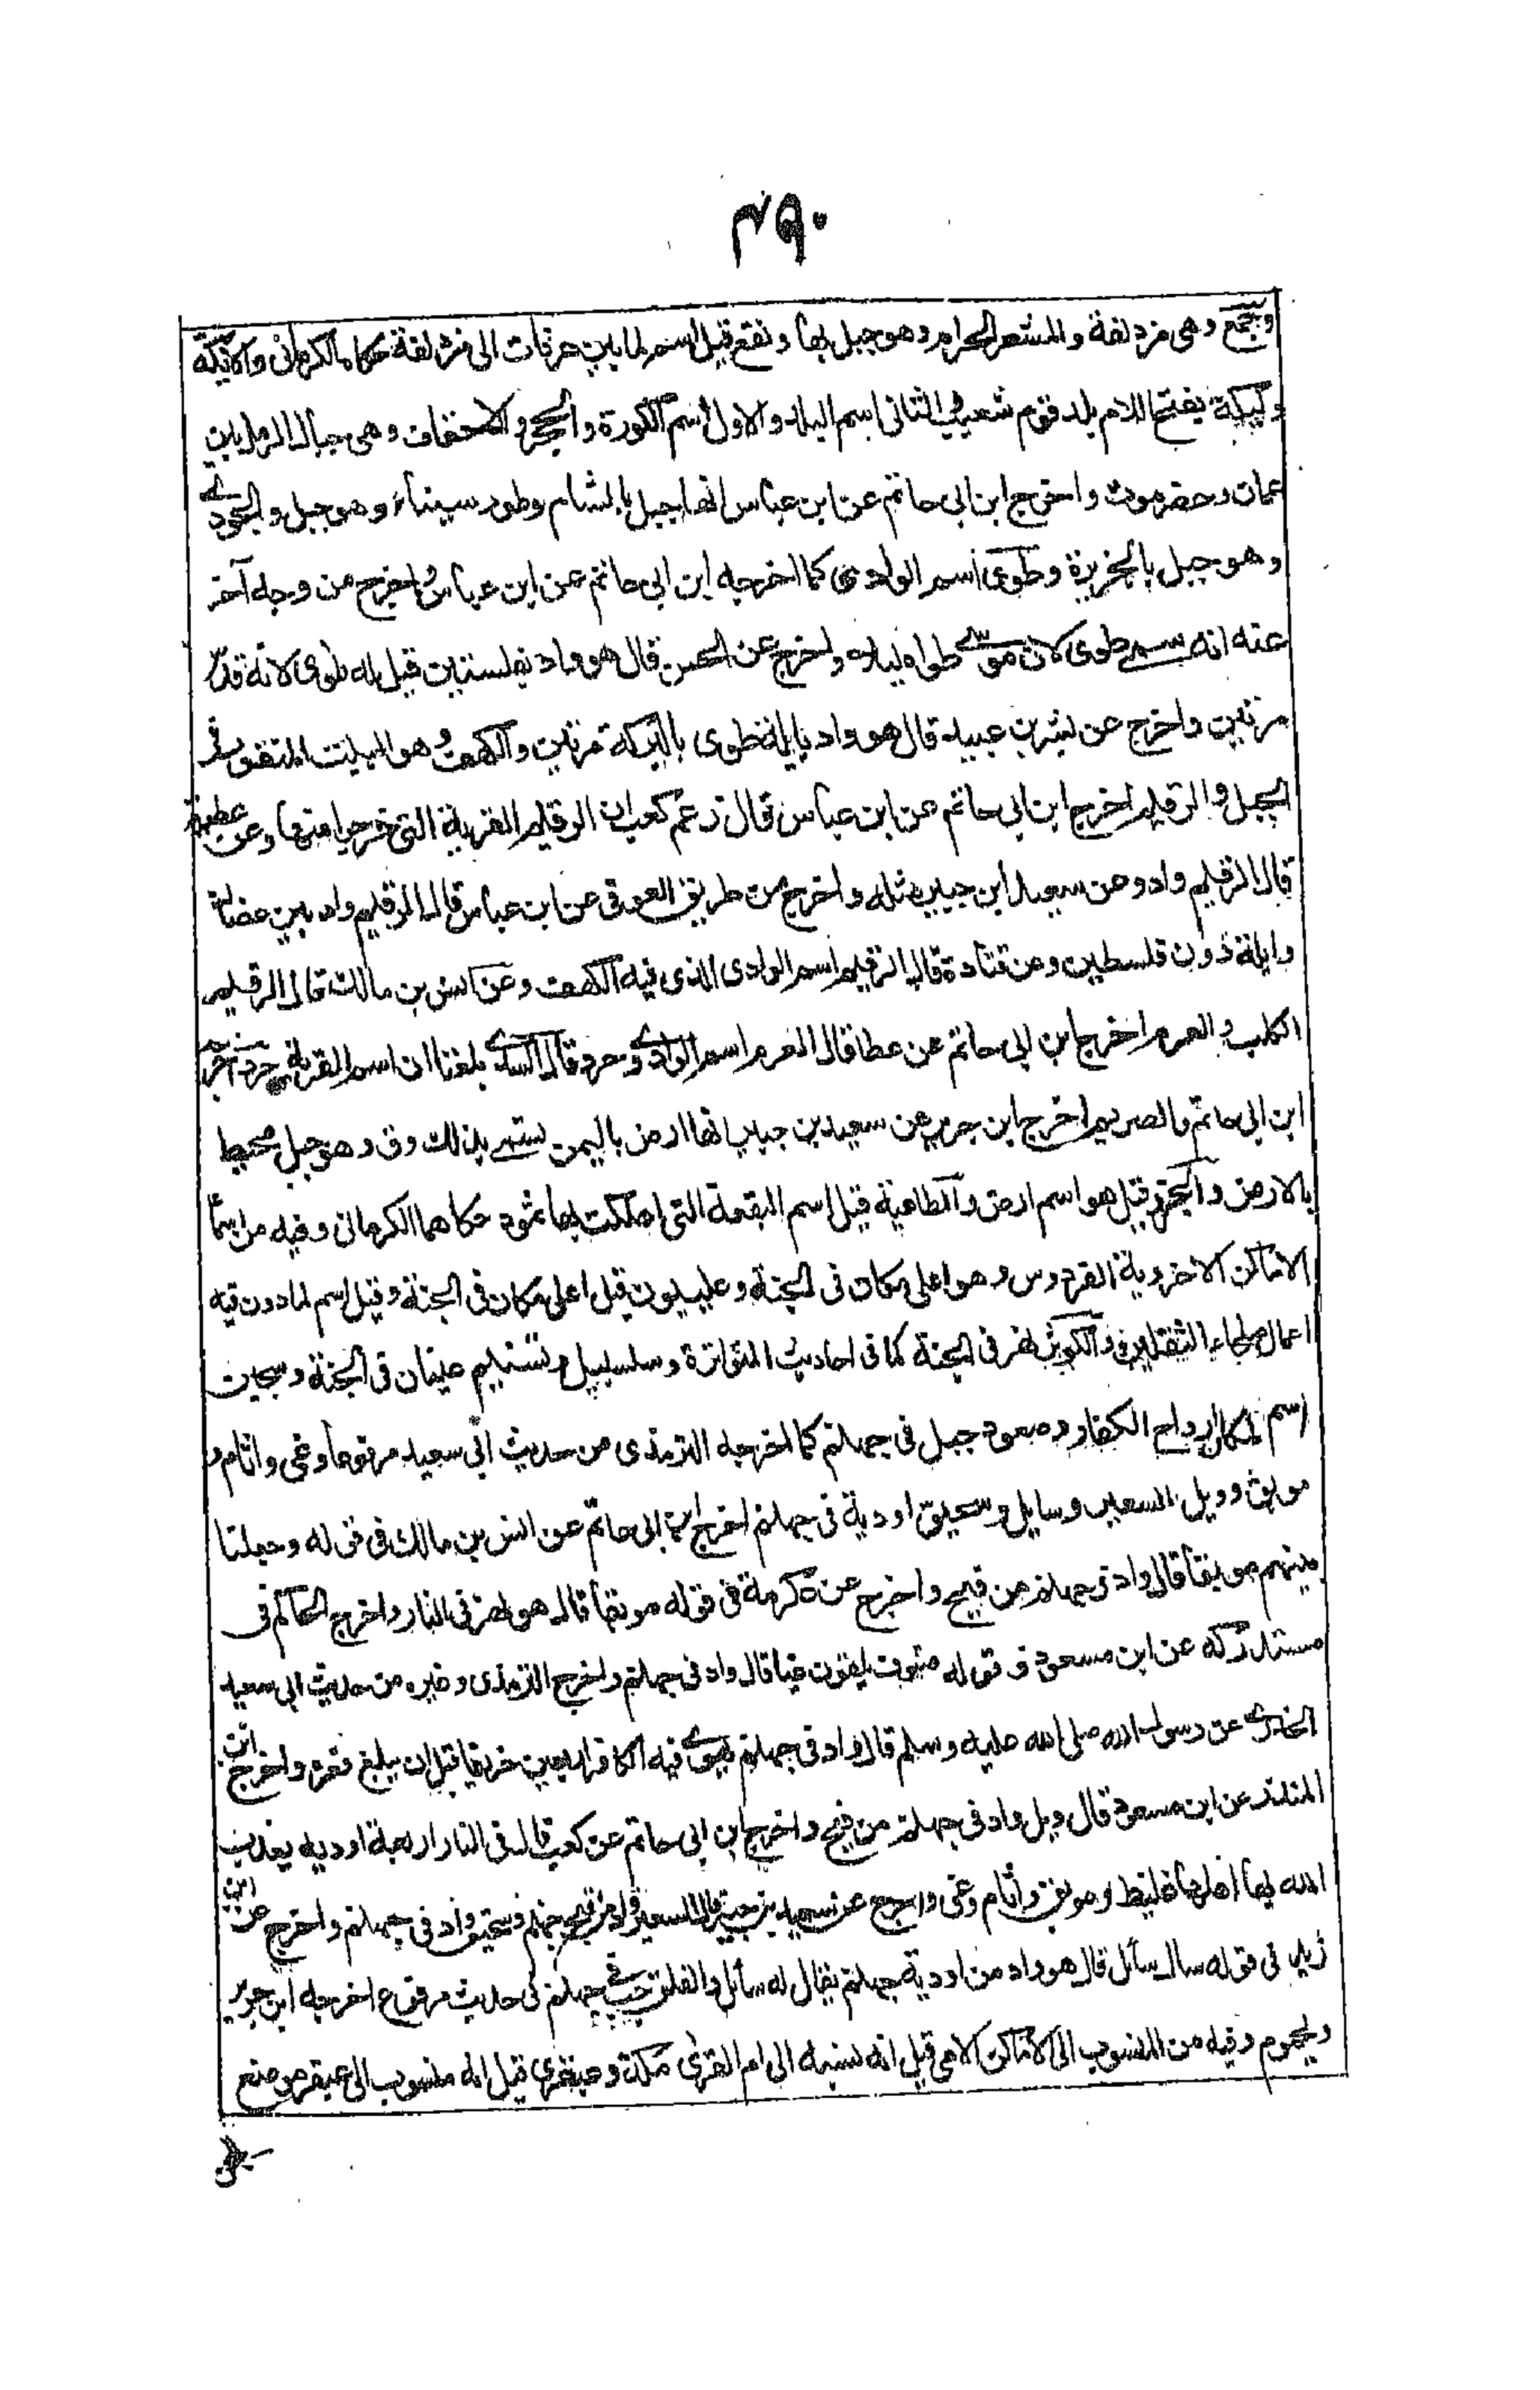 ٤٩٠
وجمع وهى مزدلفة والمشعر الحرام وهو جبل بها ونقع قيل اسم لما بين عرفات الى مزدلفة حكاه الكرمانى والايكة
وليكة بفتح اللام بلد قوم شعيب والثانى اسم البلد والاول اسم الكورة والحجر والاحقاف وهى جبال الرمل بين
عمان وحضرموت واخرج ابن ابى حاتم عن ابن عباس انها جبل بالشام وطور سيناء وهو جبل والجودى
وهو جبل بالجزيرة وطوى اسم الوادى كما اخرجه ابن ابى حاتم عن ابن عباس واخرج من وجه آخر
عنه انه سمى طوى لان موسى طواه ليلا واخرج عن الحسن قال هو واد بفلسطين قيل له طوى لانه قدّس
مرتين واخرج عن بشر بن عبيد قال هو واد بايلة طوى بالبركة مرتين والكهف وهو البيت المنقور فى
الجبل والرقيم اخرج ابن ابى حاتم عن ابن عباس قال زعم كعب ان الرقيم القرية التى خرجوا منها وعن عطية
قال الرقيم واد وعن سعيد ابن جبير مثله واخرج من طريق العوفى عن ابن عباس قال الرقيم واد بين عضبان
وايلة دون فلسطين وعن قتادة قال الرقيم اسم الوادى الذى فيه الكهف وعن انس بن مالك قال الرقيم
الكلب والعرم اخرج ابن ابى حاتم عن عطا قال العرم اسم الوادى وحرد قال السدى بلغنا ان اسم القرية حرد اخرجه
ابن ابى حاتم والصريم اخرج ابن جرير عن سعيد بن جبير انها ارض باليمن تسمى بذلك وق وهو جبل محيط
بالارض والجرز قيل هو اسم ارض والطاغية قيل اسم البقعة التى اهلكت بها ثمود حكاهما الكرمانى وفيه من اسما
الاماكن الاخروية الفردوس وهو اعلى مكان فى الجنة وعليون قيل اعلى مكان فى الجنة وقيل اسم لما دون فيه
اعمال صلحاء الثقلين والكوثر نهر فى الجنة كما فى احاديث المتواترة وسلسبيل وتسنيم عينان فى الجنة وسجين
اسم لمكان ارواح الكفار وصعود جبل فى جهنم كما اخرجه الترمذى من حديث ابى سعيد مرفوعا وغى واثام و
موبق وويل السعير وسايل وسحق اودية فى جهنم اخرج ابن ابى حاتم عن انس بن مالك فى قوله وجعلنا
بينهم موبقا قال واد فى جهنم من قيح واخرج عن عكرمة فى قوله موبقا قال هو نهر فى النار واخرج الحاكم فى
مستدركه عن ابن مسعود فى قوله فسوف يلقون غيا قال واد فى جهنم واخرج الترمذى وغيره من حديث ابى سعيد
الخدرى عن رسول الله صلى الله عليه وسلم قال واد فى جهنم يهوى فيه الكافر اربعين خريفا قبل ان يبلغ قعره واخرج ابن
المنذر عن ابن مسعود قال ويل واد فى جهنم من قيح واخرج ابن ابى حاتم عن كعب قال فى النار اربعة اودية يعذب
الله بها اهلها غليظ وموبق واثام وغى واخرج عن سعيد بن جبير قال السعير واد من قيح جهنم وسحق واد فى جهنم واخرج عن ابن
زيد فى قوله سال سائل قال هو واد من اودية جهنم يقال له سائل والفلق جب فى جهنم فى حديث مرفوع اخرجه ابن جرير
ويحموم وفيه من المنسوب الى الاماكن الامى قيل انه نسبه الى ام القرى مكة وعبقرى قيل انه منسوب الى عبقر موضع